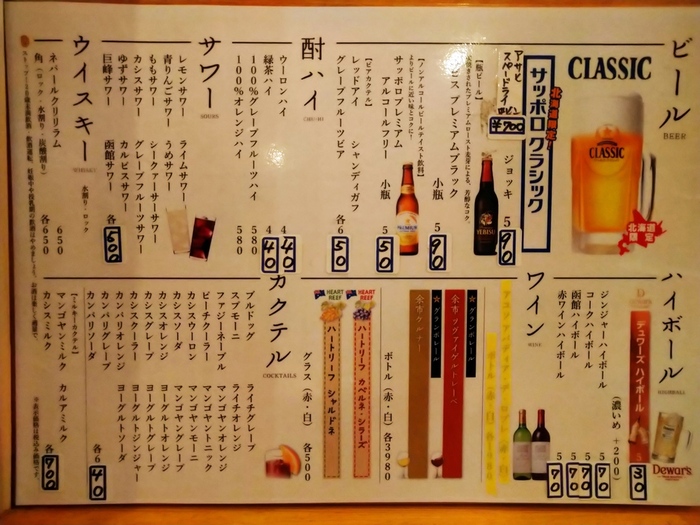 ビール
BEER
CLASSIC
CLASSIC
北海道
限定
北海道限定!
サッポロクラシック
ジョッキ 590
アサヒ
スーパードライ
¥700
【瓶ビール】
プレミアムブラック 小瓶 590
【ノンアルコールビールテイスト飲料】
サッポロプレミアム
アルコールフリー 小瓶 550
【ビアカクテル】
レッドアイ シャンディガフ
グレープフルーツビア 各650
酎ハイ
CHU-HI
ウーロンハイ 440
緑茶ハイ 440
100%グレープフルーツハイ 580
100%オレンジハイ 580
サワー
レモンサワー ライムサワー
青りんごサワー うめサワー
ももサワー シークァーサーサワー
カシスサワー グレープフルーツサワー
ゆずサワー カルピスサワー
巨峰サワー 函館サワー 各500
ウイスキー
WHISKY
水割り・ロック
ネパールククリラム 650
角(ロック・水割り・炭酸割り) 各650
ハイボール
HIGHBALL
デュワーズ ハイボール 530
Dewar's
(濃いめ +200)
ジンジャーハイボール 570
コークハイボール 570
函館ハイボール 570
赤ワインハイボール 570
ワイン
WINE
☆グランポレール
余市 ツヴァイゲルトレーベ
☆グランポレール
余市ケルナー
ボトル(赤・白) 各3980
HEART REEF
ハートリーフ カベルネ・シラーズ
HEART REEF
ハートリーフ シャルドネ
グラス(赤・白) 各500
カクテル
COCKTAILS
ブルドッグ ライチグレープ
スプモーニ ライチオレンジ
ファジーネーブル マンゴヤンオレンジ
ピーチクーラー マンゴヤントニック
カシスウーロン マンゴヤンモーニ
カシスソーダ マンゴヤングレープ
カシスオレンジ ヨーグルトオレンジ
カシスグレープ ヨーグルトグレープ
カシスクーラー ヨーグルトジンジャー
カンパリオレンジ ヨーグルトソーダ
カンパリグレープ
カンパリソーダ 各640
【ミルキーカクテル】
マンゴヤンミルク カルアミルク
カシスミルク 各700